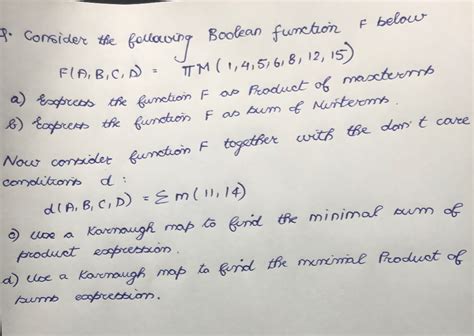 9. Consider the following Boolean function F below
F(A,B,C,D) = πM(1,4,5,6,8,12,15)
a) Express the function F as Product of maxterms
b) Express the function F as sum of Minterms.
Now consider function F together with the don't care
conditions d :
d(A,B,C,D) = Σm(11,14)
c) Use a Karnaugh map to find the minimal sum of
product expression.
d) Use a Karnaugh map to find the minimal Product of
sums expression.